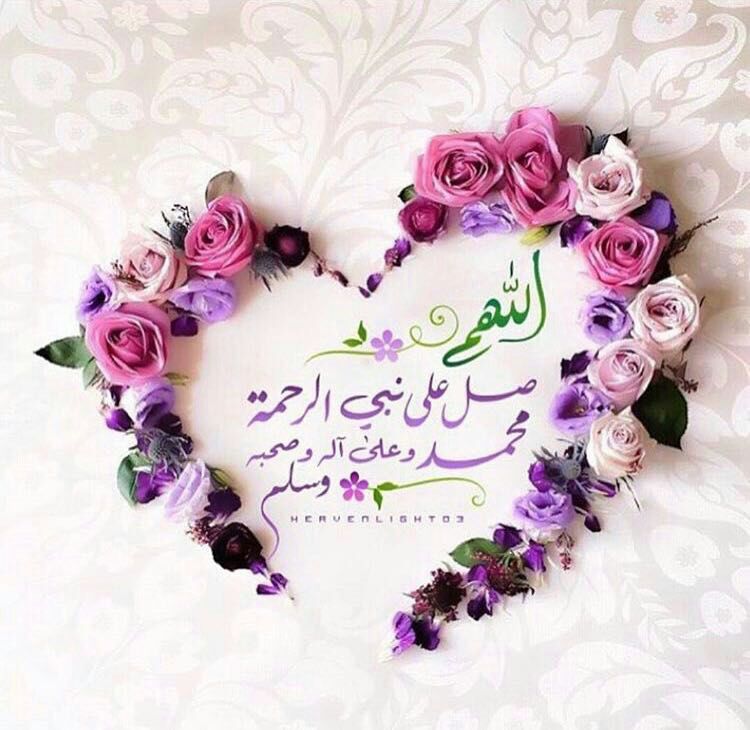 اللهم
صل على نبي الرحمة
محمد وعلى آله وصحبه
وسلم
HEAVENLIGHT03